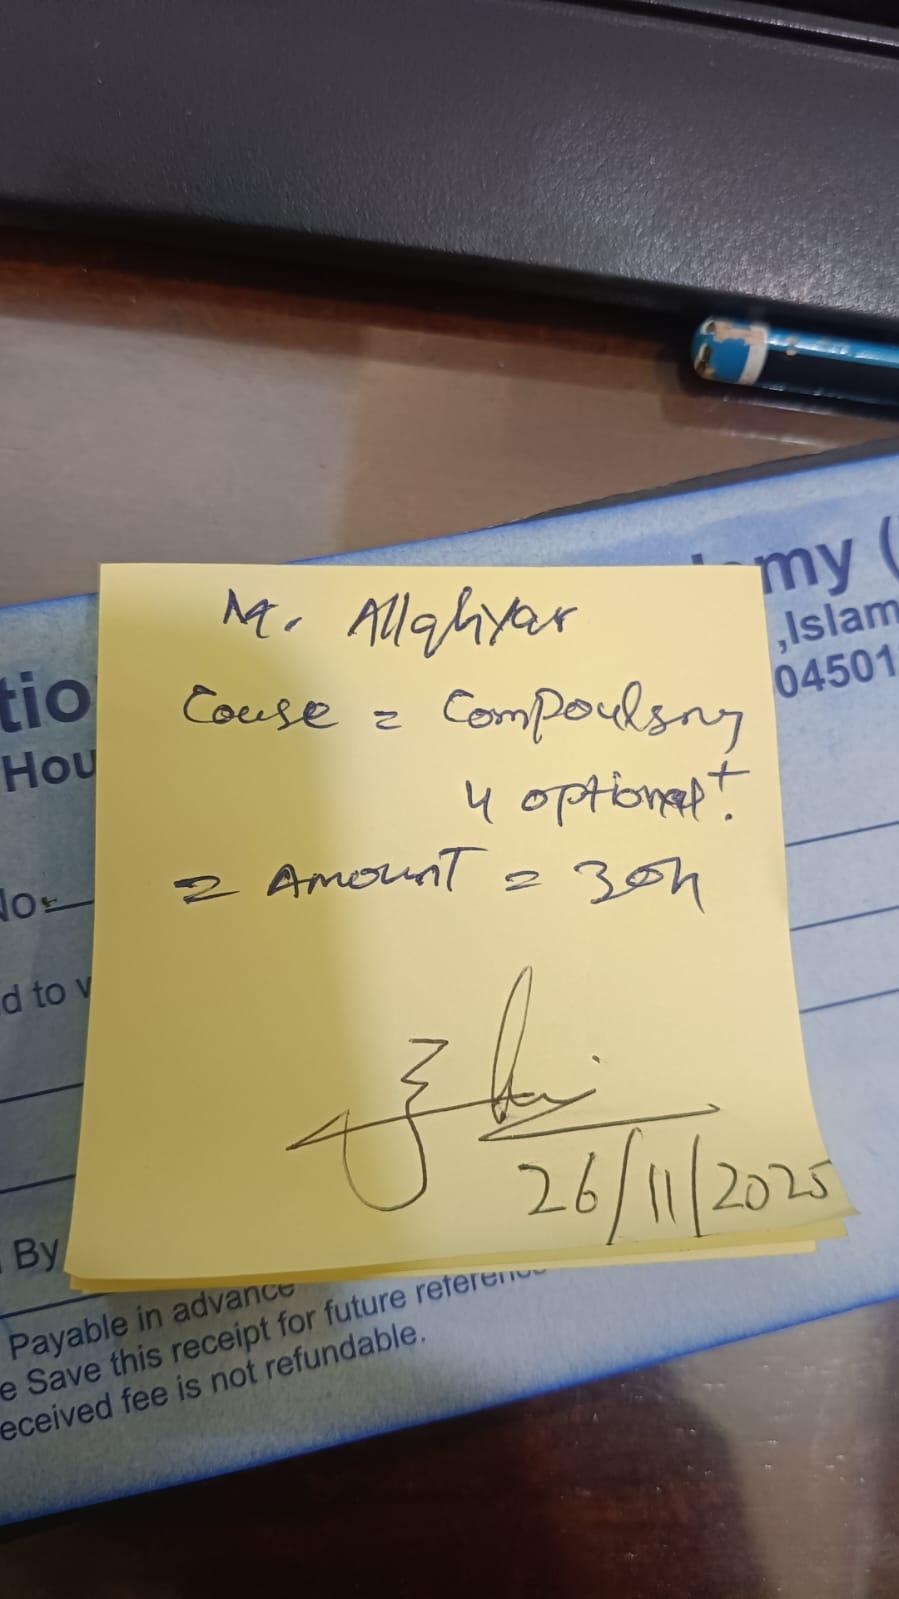 my (
,Islam
04501
tio
Hou
M. Allahyar
Couse = Compoulsory
4 optional +.
= Amount = 30h
No
d to w
26/11/2025
By
Payable in advance
e Save this receipt for future reference
eceived fee is not refundable.